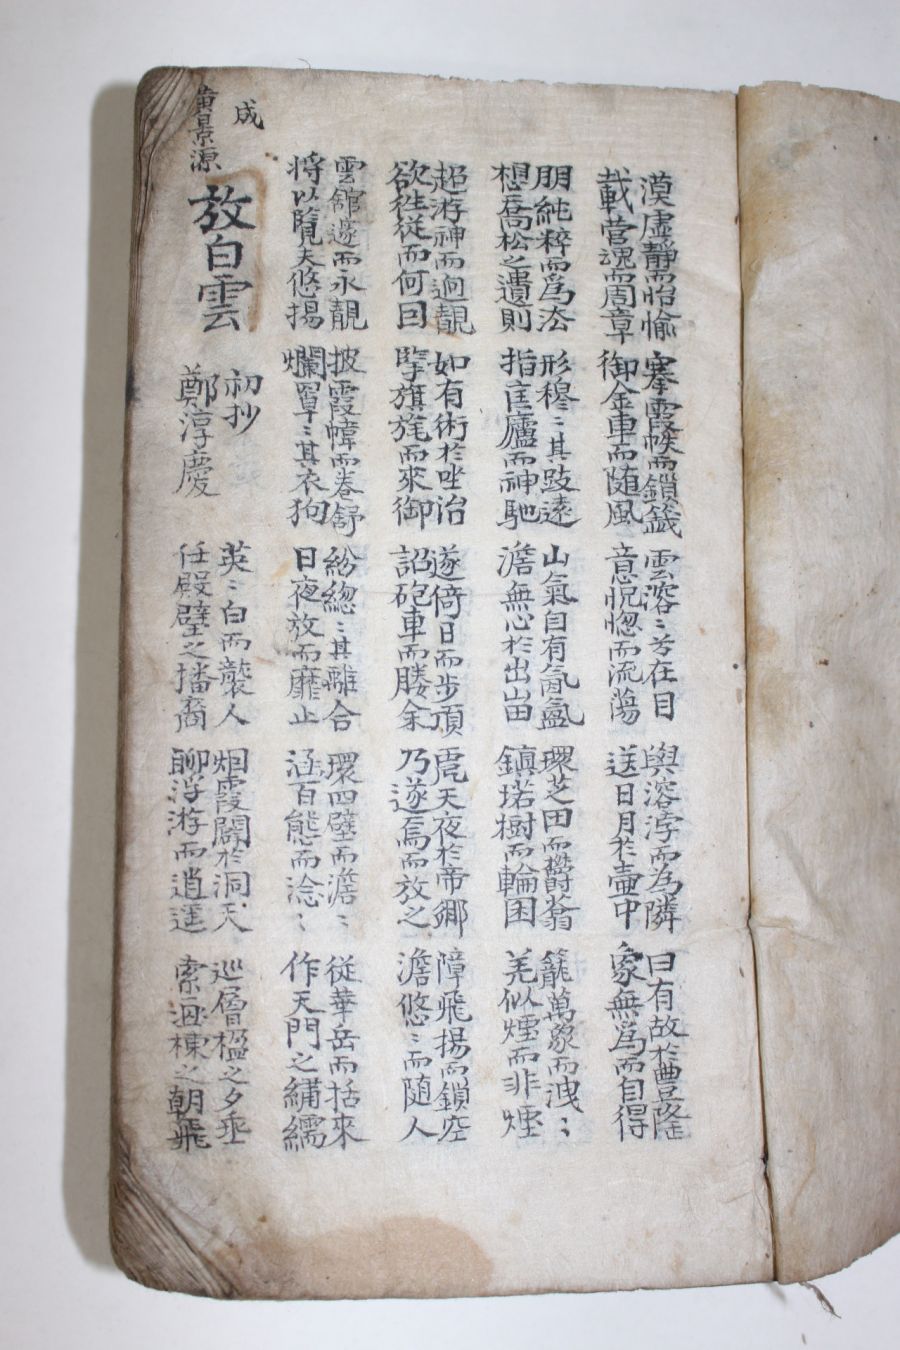 漠虛靜而怡愉 搴霞帷而鎖籤 雲溶〻兮在目 與溶浮而為隣 曰有故於豊隆
載營魂而周章 御金車而随風 意怳惚而流蕩 送日月於壷中 象無爲而自得
朋純粹而爲㳒 形穆〻其跂遠 山氣自有氤氳 環芝田而欝蓊 籠萬象而洩〻
想喬松之遺則 指匡廬而神馳 澹無心於出岫 鎮堦樹而輪囷 羌似煙而非煙
超游神而迥觀 如有術於坐治 遂倚日而步頂 天夜於帝鄉 障飛揚而鎖空
欲徃從而何曰 擥旗旄而來御 詔砲車而媵余 乃遂焉而放之 澹悠〻而随人
雲錧邃而永靚 披霞幃而卷舒 紛緫〻其離合 環四壁而澹〻 從華岳而括來
将以覧夫悠揚 爛罩〻其衣狗 日夜放而靡止 涵百態而淰〻 作天門之繻
成
黃景源
放白雲
初抄
鄭淳慶
英〻白而襲人 烟霞闢於洞天 巡層楹之夕垂
任殿壁之播裔 聊浮游而逍遥 索棟之朝飛